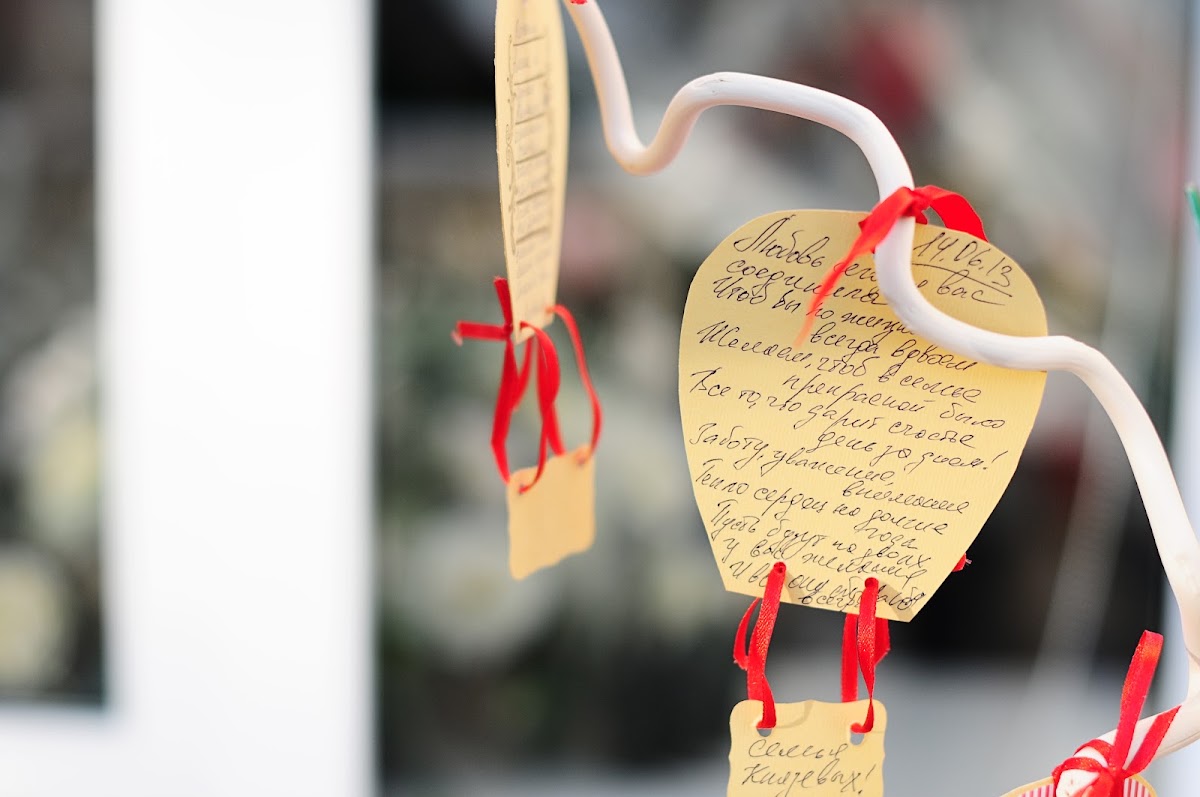 Любовь вас
14.06.13
соединила
Чтоб вы по жизни
всегда вдвоём
Желаем, чтоб в семье
прекрасной было
Все то, что дарит счастье
день за днем!
Заботу, уважение,
внимание
Тепло сердец на долгие
года
Пусть будут на двоих
у вас желания
И всегда
семья
Князевых!